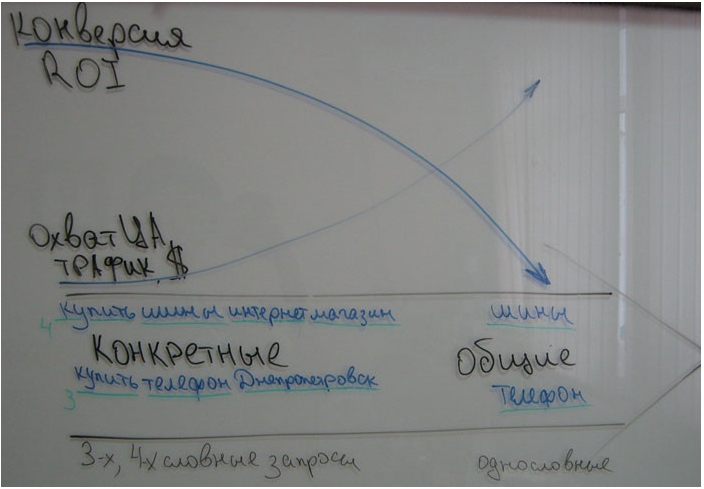 Конверсия
ROI
Охват ЦА,
трафик, $
4 купить шины интернет магазин шины
Конкретные Общие
3 купить телефон Днепропетровск телефон
3-х, 4-х словные запросы однословные